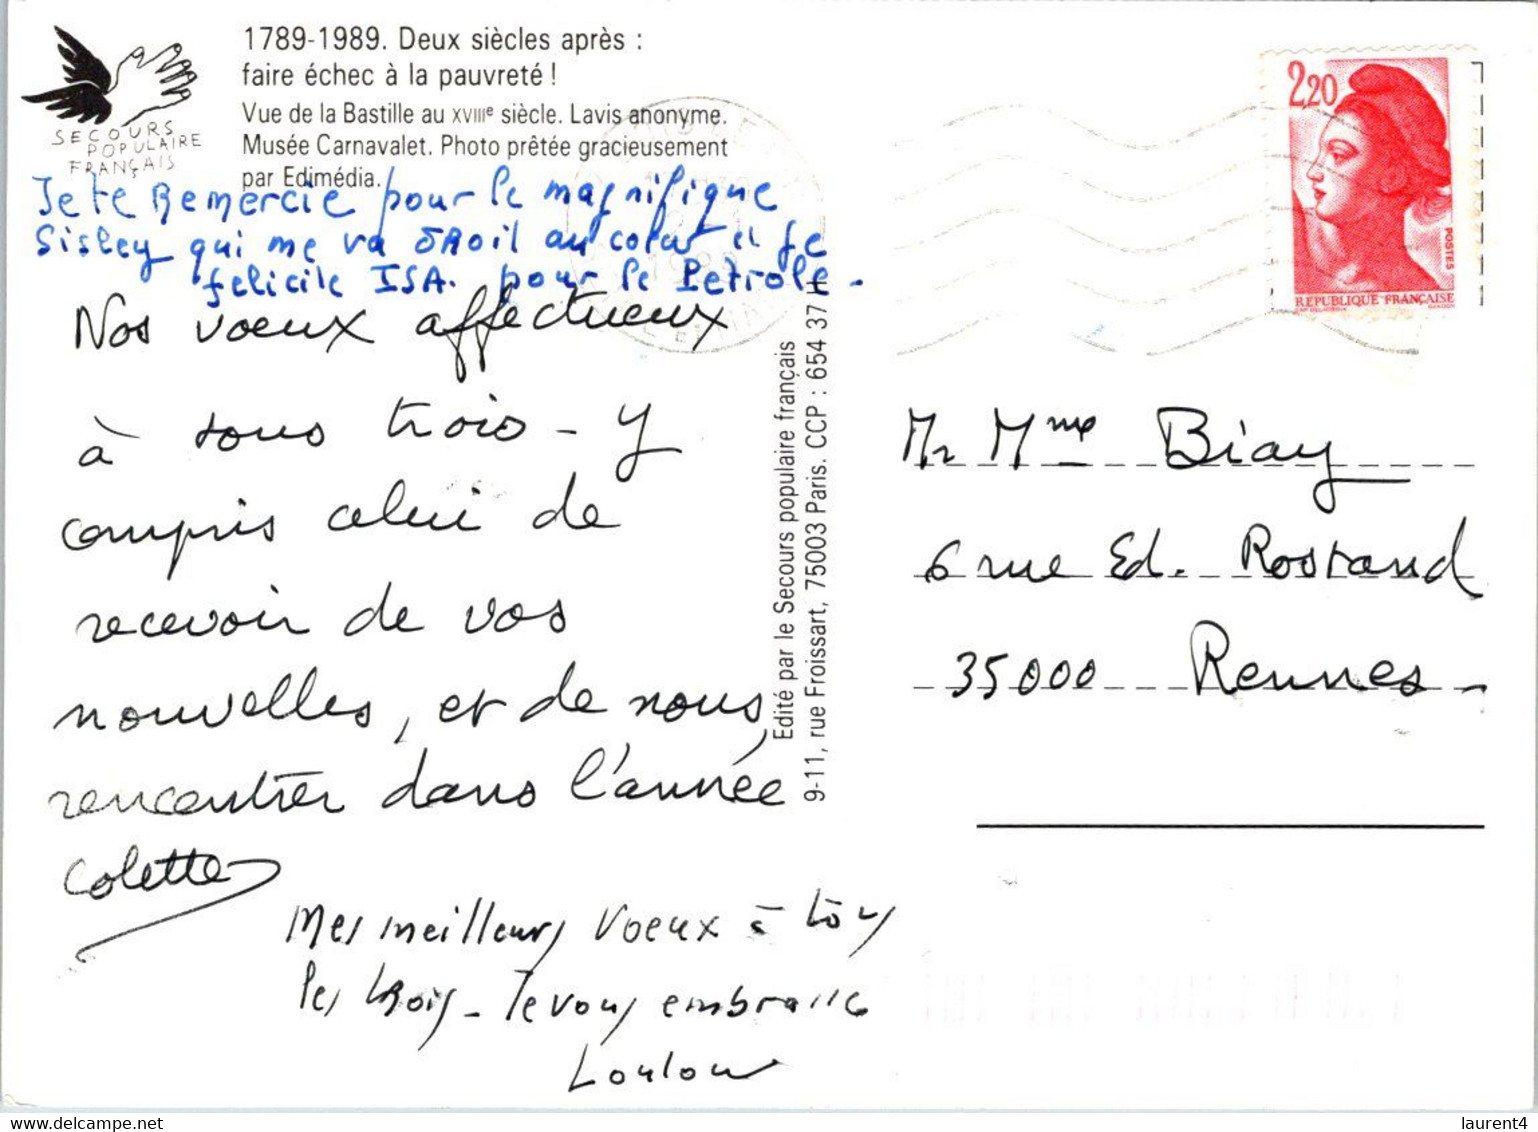 1789-1989. Deux siècles après :
faire échec à la pauvreté !
Vue de la Bastille au XVIIIe siècle. Lavis anonyme.
Musée Carnavalet. Photo prêtée gracieusement
par Edimédia.
SECOURS
POPULAIRE
FRANÇAIS
Je te Remercie pour le magnifique
Sisley qui me va droit au cœur et je
felicite ISA. pour le Petrole.
Nos voeux affectueux
à tous trois - y
compris celui de
recevoir de vos
nouvelles, et de nous
rencontrer dans l'année
Colette
Mes meilleurs voeux à tous
les trois - Je vous embrasse
Loulou
Edité par le Secours populaire français
9-11, rue Froissart, 75003 Paris. CCP : 654 37 H
2,20
POSTES
REPUBLIQUE FRANÇAISE
Mr Mme Biay
6 rue Ed. Rostand
35000 Rennes
laurent4